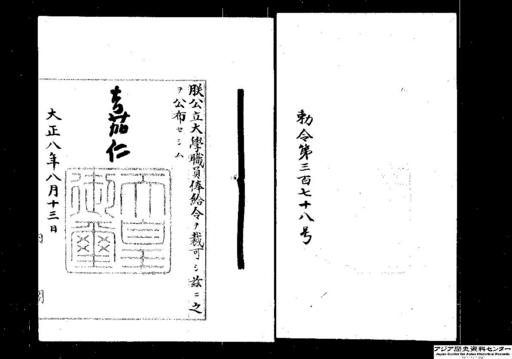 勅令第三百七十八号
朕公立大學職員俸給令ヲ裁可シ茲ニ之
ヲ公布セシム
嘉仁
天皇御璽
大正八年八月十三日
内
アジア歴史資料センター
Japan Center for Asian Historical Records